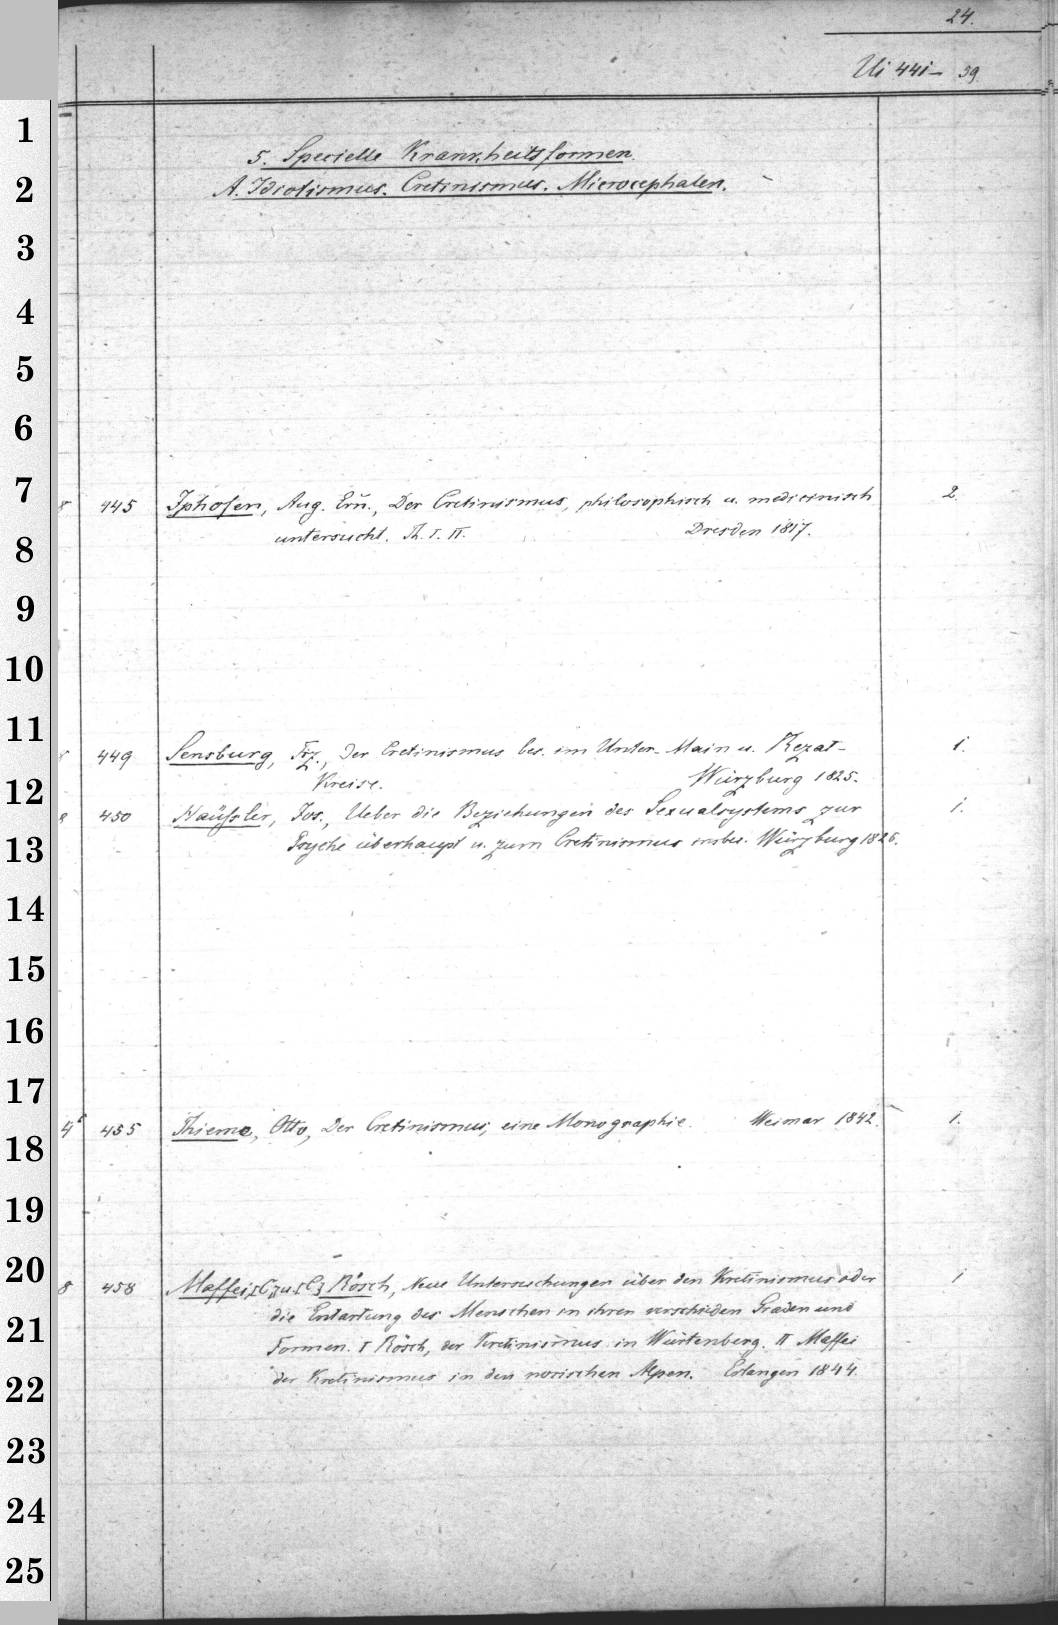 24.
Ui 441– 39.
5. Specielle Krankheitsformen.
A. Idiotismus. Cretinismus. Microcephalen.
445 Iphofen, Aug. Ern., Der Cretinismus, philosophisch u. medicinisch 2.
untersucht. Th. I. II. Dresden 1817.
449 Sensburg, Frz., Der Cretinismus bes. im Unter-Main u. Rezat- 1.
Kreise. Würzburg 1825.
450 Häufsler, Jos., Ueber die Beziehungen des Sexualsystems zur 1.
Psyche überhaupt u. zum Cretinismus insbes. Würzburg 1826.
4° 455 Thieme, Otto, Der Cretinismus, eine Monographie. Weimar 1842. 1.
8 458 Maffei, [C] u. [C] Rösch, Neue Untersuchungen über den Kretinismus oder 1
die Entartung des Menschen in ihren verschieden Graden und
Formen. I Rösch, der Kretinismus in Würtenberg. II Maffei
der Kretinismus in den norischen Alpen. Erlangen 1844.
1
2
3
4
5
6
7
8
9
10
11
12
13
14
15
16
17
18
19
20
21
22
23
24
25